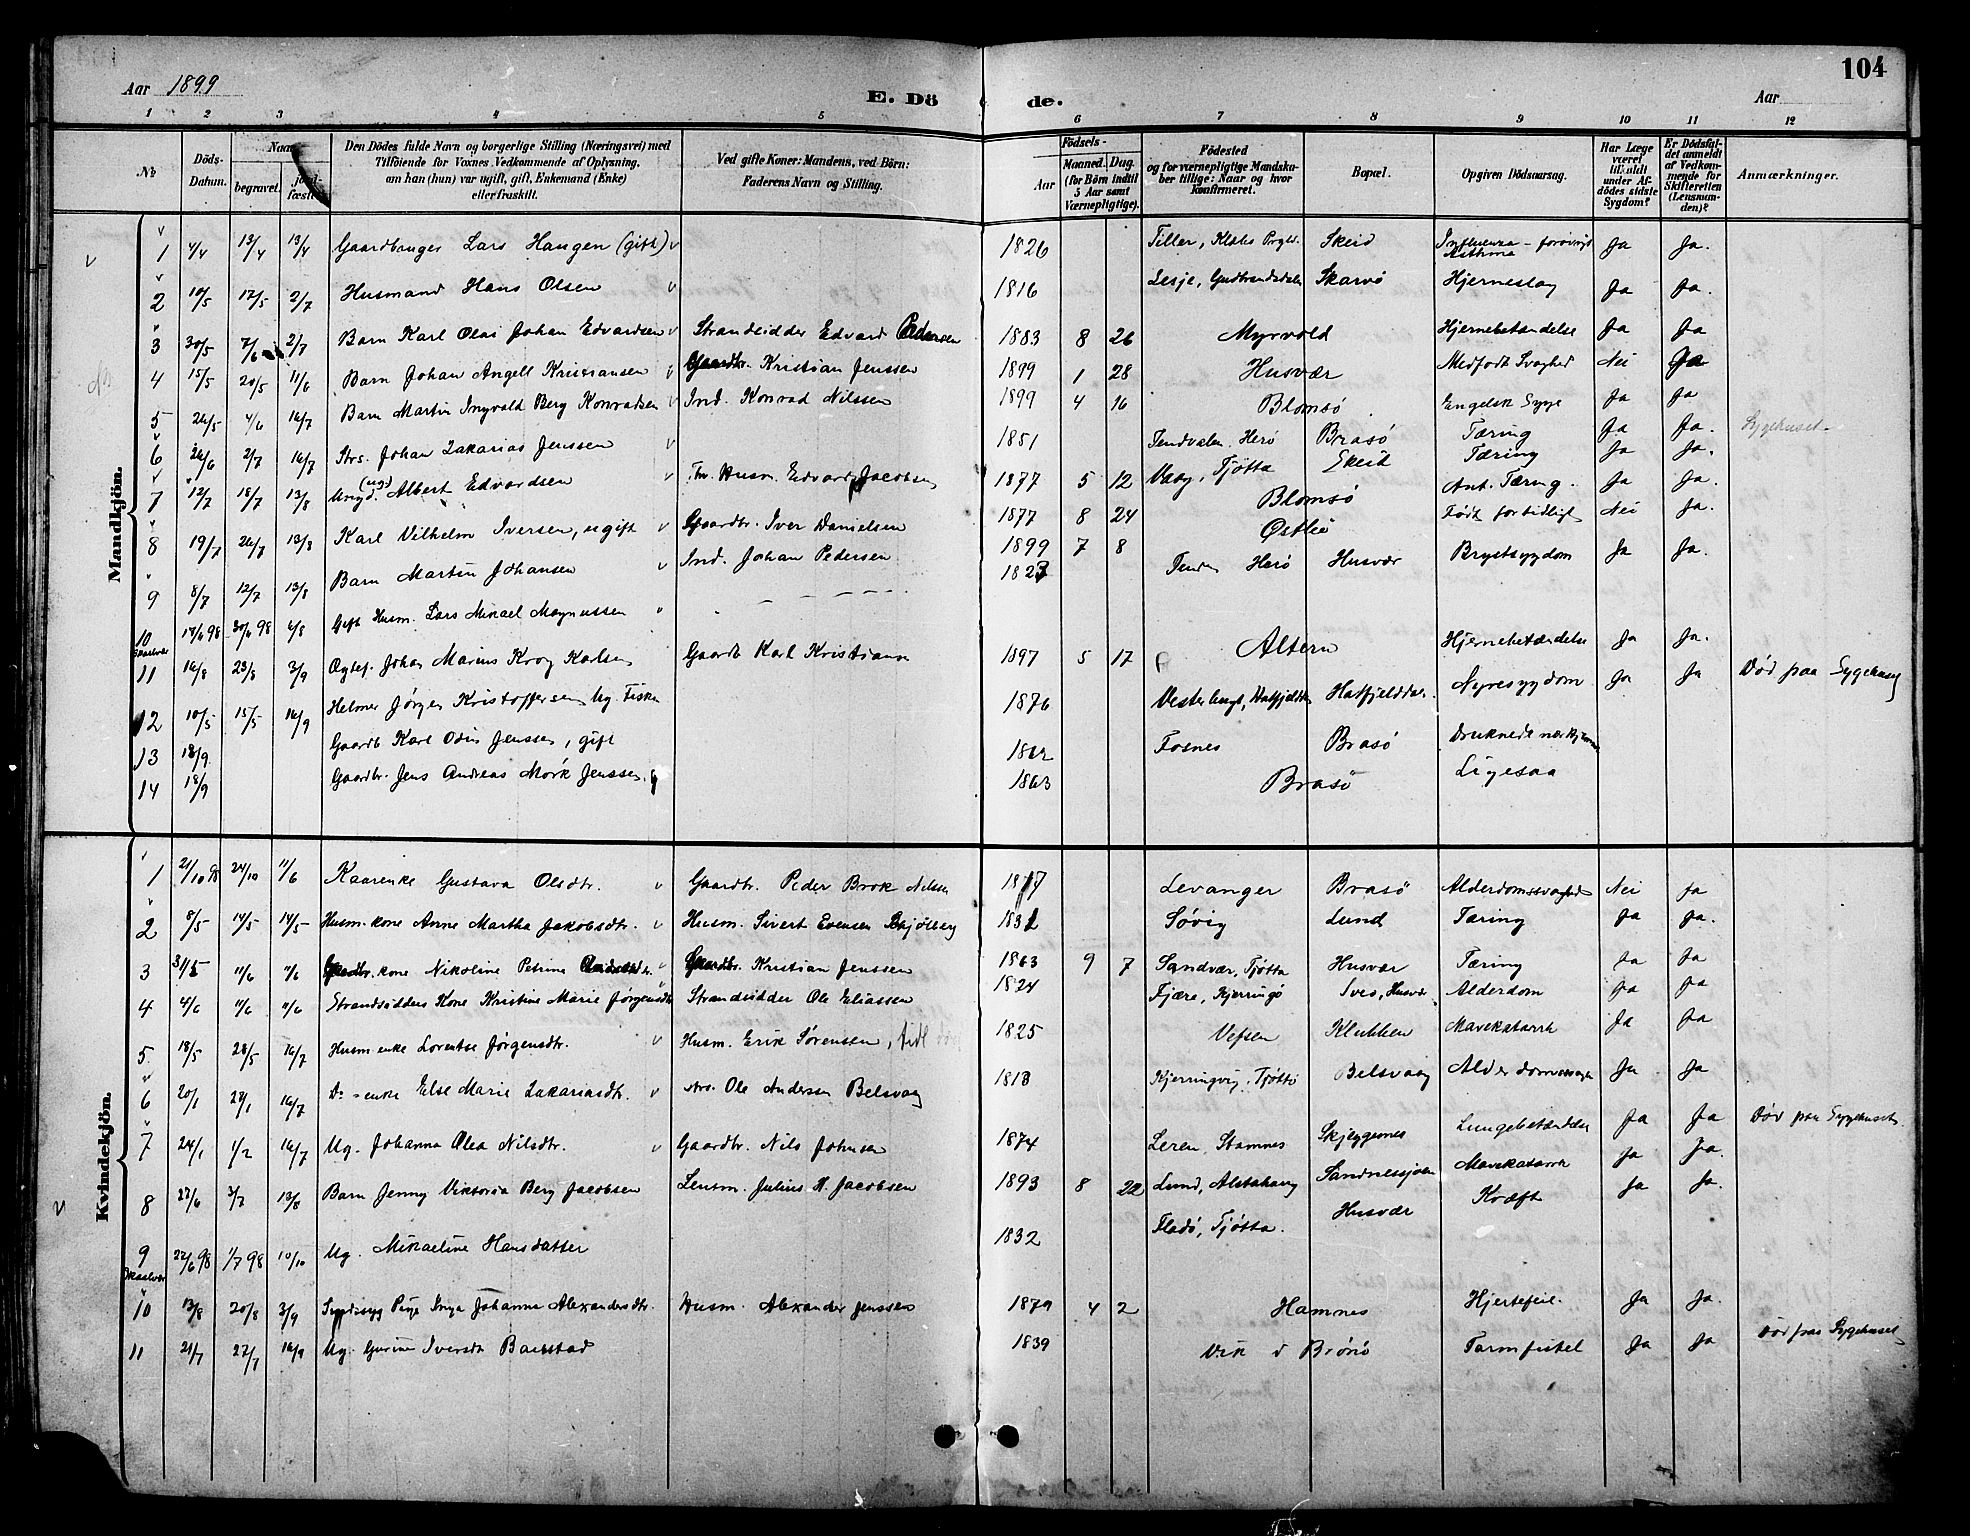 104
Aar 1899
E. Dö de.
Aar
1 2 3 4 5 6 7 8 9 10 11 12
No
Döds-Datum.
Naar
begravet.
jord-fæstet.
Den Dödes fulde Navn og borgerlige Stilling (Næringsvei) med
Tilföiende for Voxnes Vedkommende af Oplysning,
om han (hun) var ugift, gift, Enkemand (Enke)
eller fraskilt.
Ved gifte Koner: Mandens, ved Börn:
Faderens Navn og Stilling.
Födsels-
Aar
Maaned. Dag.
(for Börn indtil
5 Aar samt
Værnepligtige).
Födested
og for værnepligtige Mandska-
ber tillige: Naar og hvor
konfirmeret.
Bopæl.
Opgiven Dödsaarsag.
Har Læge
været
tilkaldt
under Af-
dödes sidste
Sygdom?
Er Dödsfal-
det anmeldt
af Vedkom-
mende for
Skifteretten
(Lensman-
den)?
Anmærkninger.
Mandkjön.
1 4/4 13/4 13/4 Gaardbruger Lars Haugen (gift) 1826 Tiller, Klæbo Prgld. Skeid Influenza - forøvrigt Asthma Ja Ja.
2 10/5 17/5 2/7 Husmand Hans Olsen 1816 Lesje, Gudbrandsdalen Skarvø Hjerneslag Ja Ja.
3 30/5 7/6 2/7 Barn Karl Olai Johan Edvardsen Strandsidder Edvard Pedersen 1883 8 26 Myrvold Hjernebetændelse Ja Ja
4 15/5 20/5 11/6 Barn Johan Angell Kristiansen Gaardbr. Kristian Jenssen 1899 1 28 Husvær Medfødt Svaghed Nei Ja
5 26/5 4/6 16/7 Barn Martin Ingvald Berg Konradsen Ind. Konrad Nilssen 1899 4 16 Blomsø Engelsk Syge Ja Ja
6 26/6 2/7 16/7 Strs. Johan Zakarias Jenssen 1851 Tendvalen, Herø Brasø Tæring Ja Ja. Sygehuset
7 12/7 18/7 13/8 Ungd. (ug) Albert Edvardsen Fhv. Husm. Edvard Jacobsen 1877 5 12 Vaag, Tjøtta Skeid Tæring Ja Ja.
8 19/7 26/7 13/8 Karl Vilhelm Iversen, ugift Gaardbr. Iver Danielsen 1877 8 24 Blomsø Ant. Tæring. Ja Ja.
9 8/7 12/7 13/8 Barn Martin Johansen Ind. Johan Pedersen 1899 7 8 Østlie Født for tidligt Nei Ja.
10 17/6 98 30/6 98 6/8 Gift Husm. Lars Mikael Magnussen 1823 Herø Husvær Brystsygdom Ja Ja.
11 16/8 23/8 3/9 Ogtef. Johan Marius Krog Karlsen Gaardb Karl Kristiansen 1897 5 17 Altern Hjernebetændelse Ja Ja.
12 10/5 15/5 16/9 Helmer Jørgen Kristoffersen Ug. Fisker 1876 Hatfjelddal. Nyresygdom Ja Ja Død paa Sygehuset
13 18/9 Gaardb Karl Odin Jenssen, gift 1862 Fosnes Brasø Druknede nær Hjemmet
14 18/9 Gaardbr. Jens Andreas Mørk Jenssen, g 1863 Brasø Ligesaa
Kvindekjön.
1 21/10 98 24/10 11/6 Kaarenke Gustava Olsdtr. Gaardbr. Peder Brok Nilssen 1817 Levanger Brasø Alderdomssvaghed Nei Ja
2 8/5 14/5 14/5 Husm.kone Anne Martha Jakobsdtr. Husm. Sivert Evensen 1832 Søvig Lund Tæring Ja Ja.
3 31/5 11/6 11/6 Gaardbr.kone Nikoline Petrine Andersdtr. Gaardbr. Kristian Jenssen 1863 9 7 Sandvær, Tjøtta Husvær Tæring Ja Ja
4 4/6 11/6 11/6 Strandsidders Kone Kristine Marie Jørgensdtr Strandsidder Ole Eliassen 1824 Fjære, Kjerringø Husvær Alderdom Ja Ja
5 18/5 28/5 16/7 Husm enke Lorentse Jørgensdtr. Husm. Erik Sørensen, tidl 1825 Vefsen Klubben Mavekatarrh Ja Ja
6 20/1 27/1 16/7 Do - enke Else Marie Zakariasdtr. Strs. Ole Andersen Belsvaag 1818 Kjerringvig, Tjøtta Belsvaag Alderdomssvaghed Ja Ja
7 24/1 1/2 16/7 Ug. Johanna Olea Nilsdtr. Gaardbr. Nils Johnsen 1874 Leren, Stamnes Skjeggesnes Lungebetændelse Ja Ja Død paa Sygehuset
8 27/6 3/7 13/8 Barn Jenny Viktoria Berg Jacobsen Lensm. Julius H. Jacobsen 1893 8 22 Lund, Alstahaug Sandnessjøen Mavekatarrh Ja Ja.
9 22/6 98 1/7 98 10/10 Ug. Mikaeline Hansdatter 1832 Fladø, Tjøtta. Husvær Kræft Ja Ja.
10 13/8 20/8 3/9 Pige Inga Johanna Alexandersdtr. Husm. Alexander Jenssen 1879 4 2 Hamnes Hjertefeil. Ja Ja.
11 21/7 27/7 16/9 Ug. Gurine Iversdtr Baustad 1839 Vik i Brønø Tarmfistel Ja Ja Død paa Sygehuset